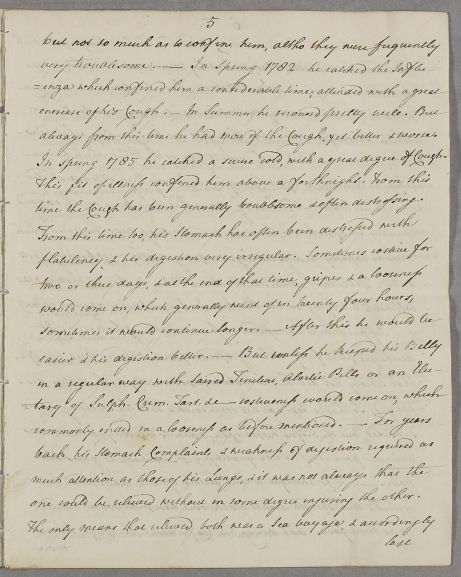 5
but not so much as to confine him, altho they were frequently
very troublesome. — In Spring 1782 he catched the Influ
=enza which confined him a considerable time, attended with a great
encrease of his Cough. — In Summer he recovered pretty well. But
always from this time he had more of the Cough, yet better & worse.
In Spring 1785 he catched a severe Cold, with a great degree of Cough.
This fit of illness confined him above a forthnight. From this
time the Cough has been generally troublesome & often distressing.
From this time too, his Stomach has often been distressed with
flatulency & his digestion very irregular. Sometimes costive for
two or three days, & at the end of that time, gripes & a looseness
would come on, which generally went off in twenty four hours,
sometimes it would continue longer. — After this he would be
easier & his digestion better. — But unless he keeped his Belly
in a regular way with Sacred Tincture, Aloetic Pills or an Elec
=tary of Sulph. Crem. Tart. &c — costiveness would come on, which
commonly ended in a looseness as before mentioned. — For years
back his Stomach Complaints & weakness of digestion required as
much attention as those of his Lungs, & it was not always that the
one could be relieved without in some degree injuring the other.
The only means that relieved both was a Sea Voyage & accordingly
last